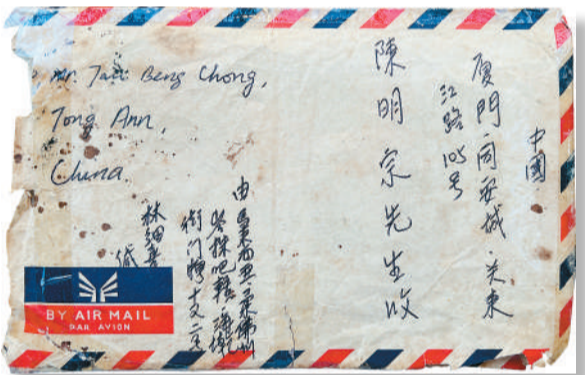 Mr. Tan Beng Chong,
Tong Ann,
China.
中國
厦門同安城关東
江路105号
陳明宗先生收
由馬来西亞柔佛州
峇株吧轄
衙門
林细
BY AIR MAIL
PAR AVION